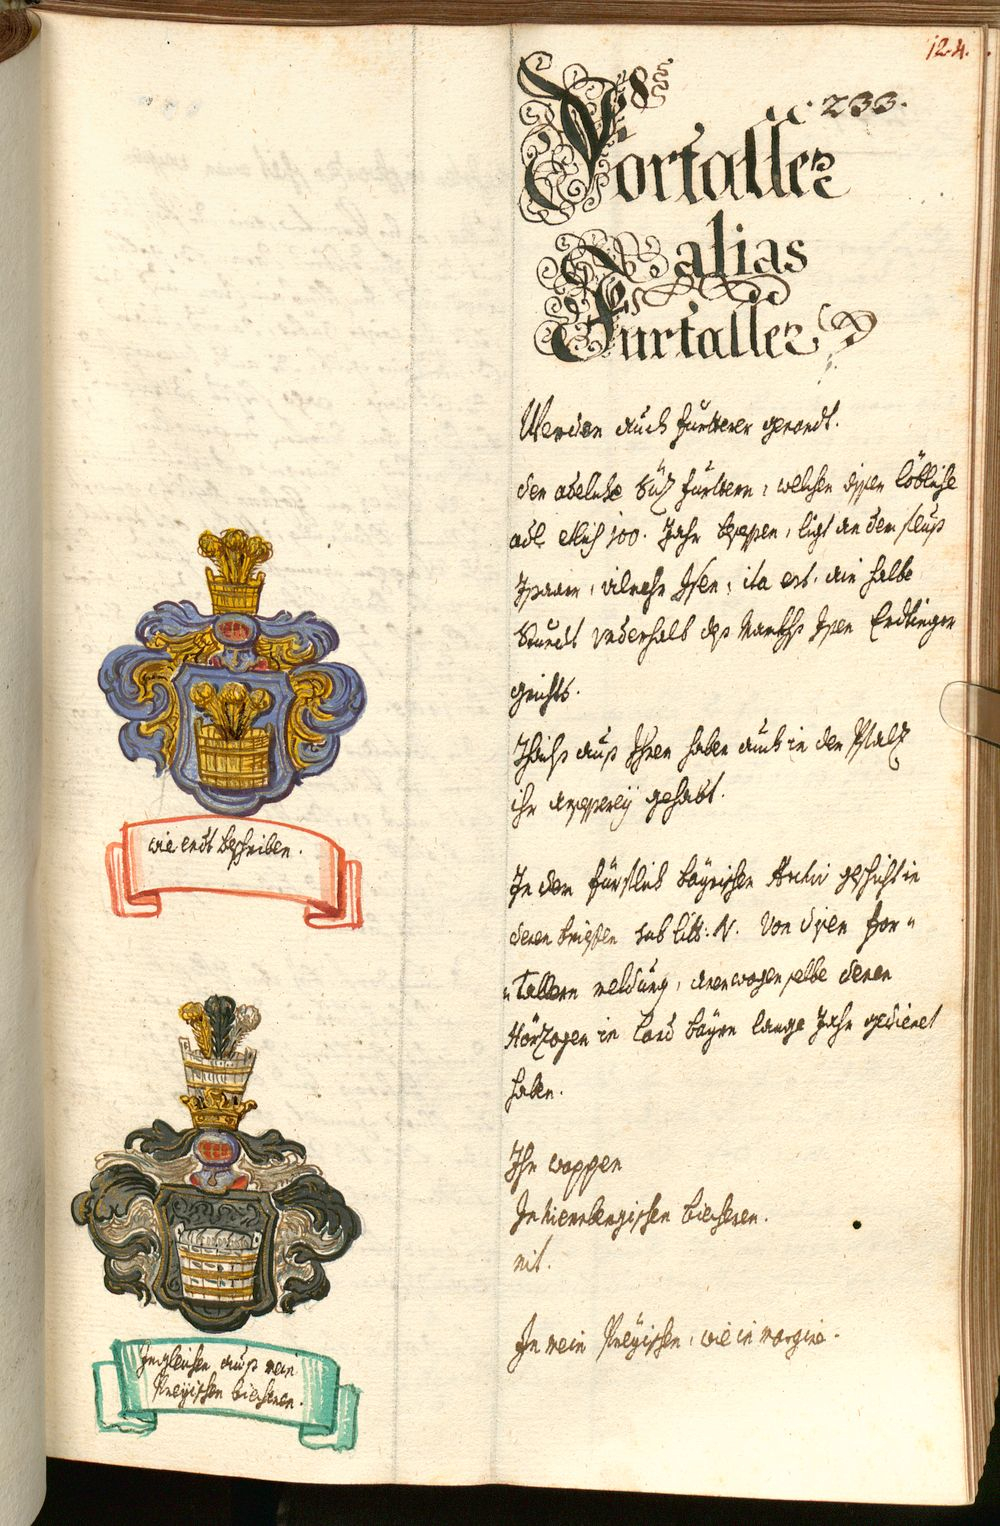 12.4.
233.
Vortaller
alias
Furtaller
Werden auch Furtterer genendt.
der adeliche Süz Furttern, welchen disser löbliche
adl etlich 100. Jahr besessen, ligt an dem fluß
Isen, ita est, ain halbe
Stundt underhalb deß Markhß Isen Erdtinger
grichts.
Theilß auß Ihnen haben auch in der Pfalz
ihr gehabt.
In dem fürstlich Bayrischen Archiv geschicht in
denen brieffen sub litt: N. von disen For=
=tallern meldung, selbe denen
Hörzogen in Land Bayrn lange Jahr gedienet
haben.
Ihr wappen
In Niernbergischen biecheren.
nit.
In mein Preyischen, wie in margine.
wie erst beschriben.
Ingleichen auß mein
Preyischen biecheren.